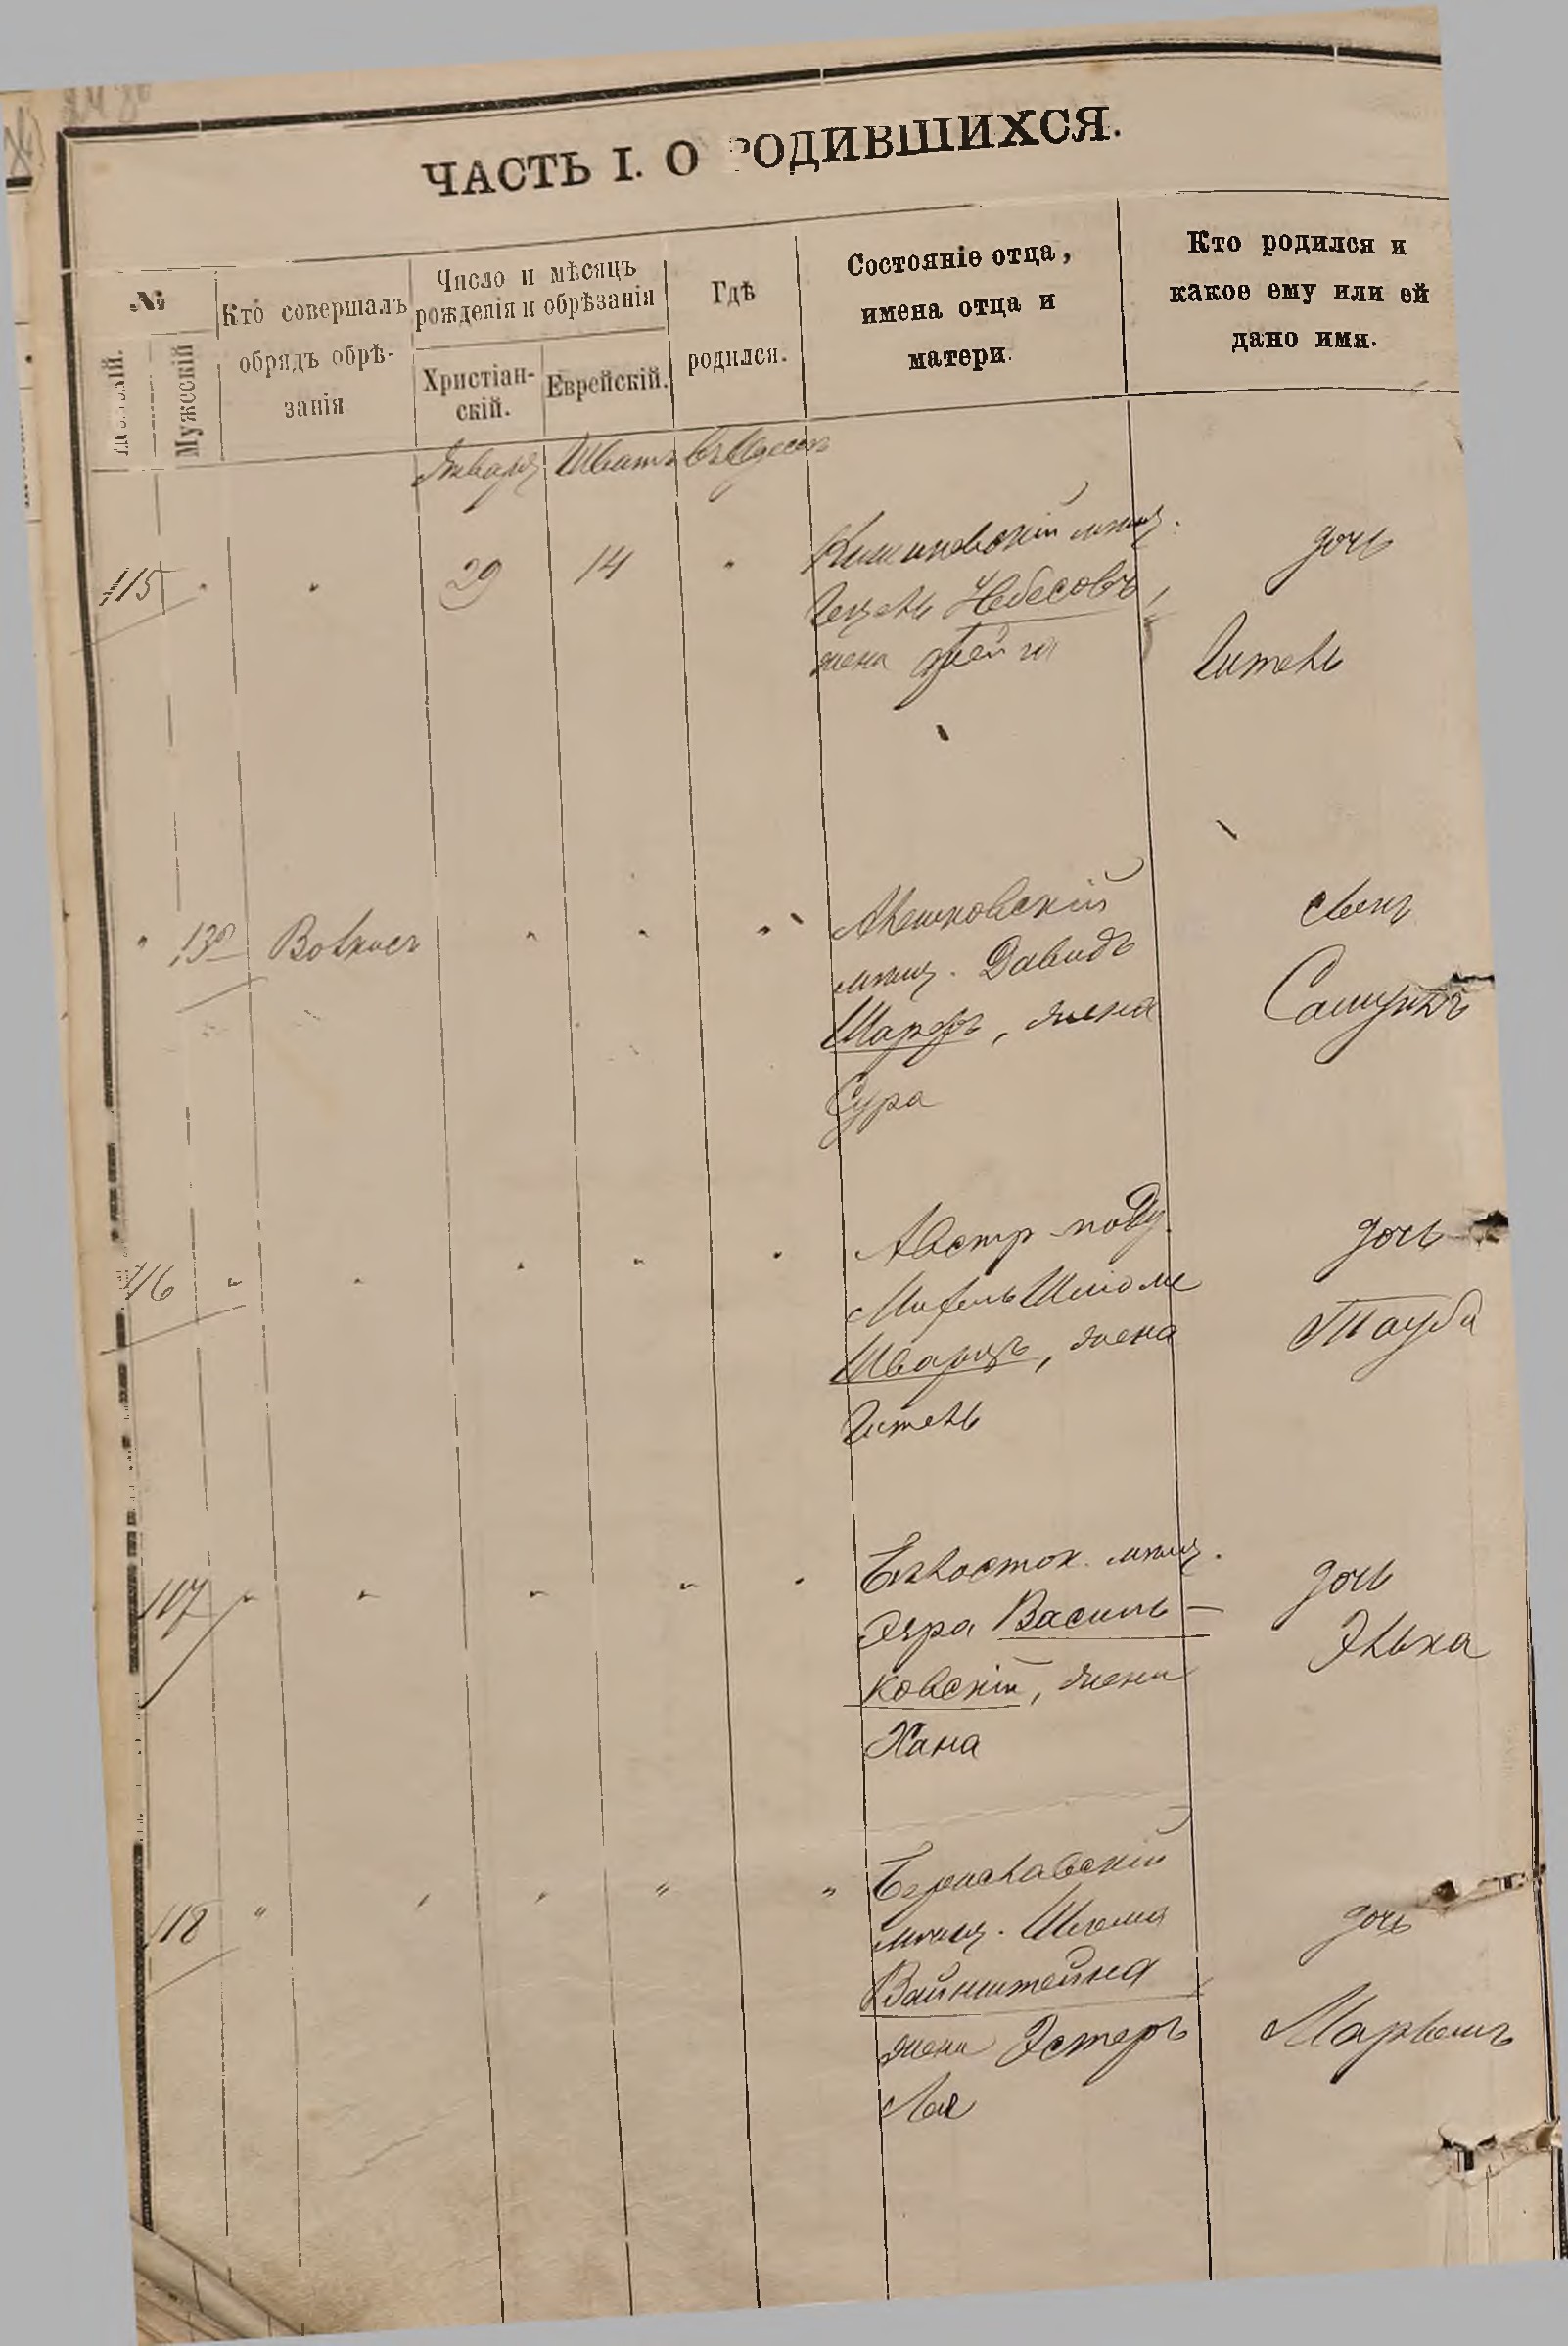 ЧАСТЬ I. О РОДИВШИХСЯ.
№
Мужескій
Кто совершалъ
обрядъ обрѣ-
занія
Число и мѣсяцъ
рожденія и обрѣзанія
Христіан-
скій.
Еврейскій.
Гдѣ
родился.
Состояніе отца,
имена отца и
матери.
Кто родился и
какое ему или ей
дано имя.
Январь Шватъ въ Одессѣ
115 " " 29 14 "
Кишиневскій мѣщ.
Небесовъ,
жена Фейга
дочь
Гитель
" 130 " " "
Алешковскій
мѣщ. Давидъ
Шарфъ, жена
Сура
сынъ
Самуилъ
116 " " " " "
Австр. подд.
Михель Шліоме
Шварцъ, жена
Гитель
дочь
Тауба
117 " " " " "
Бѣлосток. мѣщ.
Василь-
ковскій, жена
Хана
дочь
Элька
118 " " " " "
Бериславскій
мѣщ. Шлема
Вайнштейна
жена Эстеръ
Лая
дочь